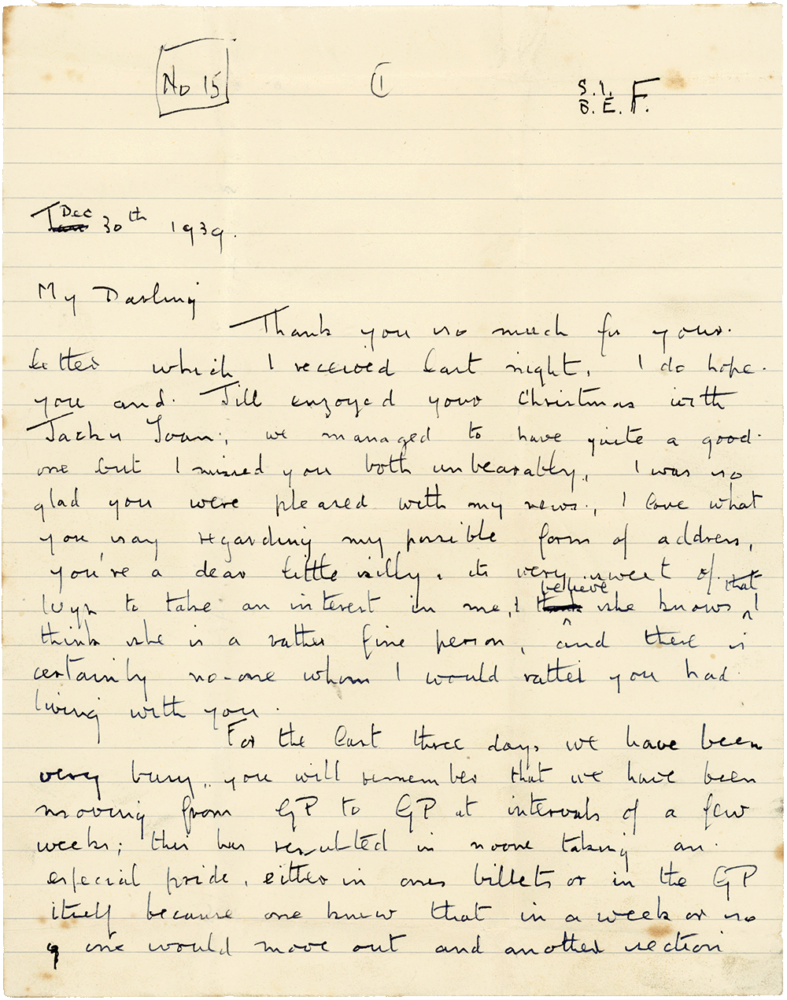 No 15
1
S. 1.
B. E. F.
Dec 30th 1939.
My Darling
Thank you so much for your
letter which I received last night, I do hope
you and Jill enjoyed your Christmas with
Jack & Joan; we managed to have quite a good
one but I missed you both unbearably, I was so
glad you were pleased with my news, I love what
you say regarding my possible form of address,
you're a dear little silly, its very sweet of
Wyn to take an interest in me, I believe she knows that I
think she is a rather fine person, and there is
certainly no-one whom I would rather you had
living with you.
For the last three days we have been
very busy, you will remember that we have been
moving from GP to GP at intervals of a few
weeks; this has resulted in noone taking an
especial pride, either in ones billets or in the GP
itself because one knew that in a week or so
one would move out and another section